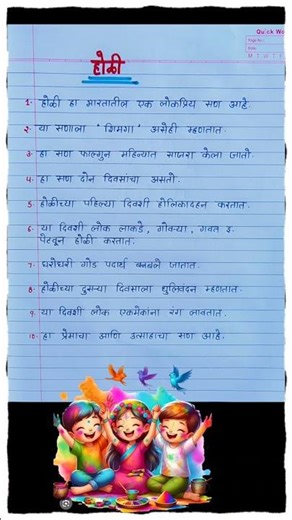 Quick Wo
Page No.
Date
M T W T F
होळी
१. होळी हा भारतातील एक लोकप्रिय सण आहे.
२. या सणाला 'शिमगा' असेही म्हणतात.
३. हा सण फाल्गुन महिन्यात साजरा केला जातो.
४. हा सण दोन दिवसांचा असतो.
५. होळीच्या पहिल्या दिवशी होलिकादहन करतात.
६. या दिवशी लोक लाकडे, गोवऱ्या, गवत इ.
पेटवून होळी करतात.
७. घरोघरी गोड पदार्थ बनवले जातात.
८. होळीच्या दुसऱ्या दिवसाला धुलिवंदन म्हणतात.
९. या दिवशी लोक एकमेकांना रंग लावतात.
१०. हा प्रेमाचा आणि उत्साहाचा सण आहे.